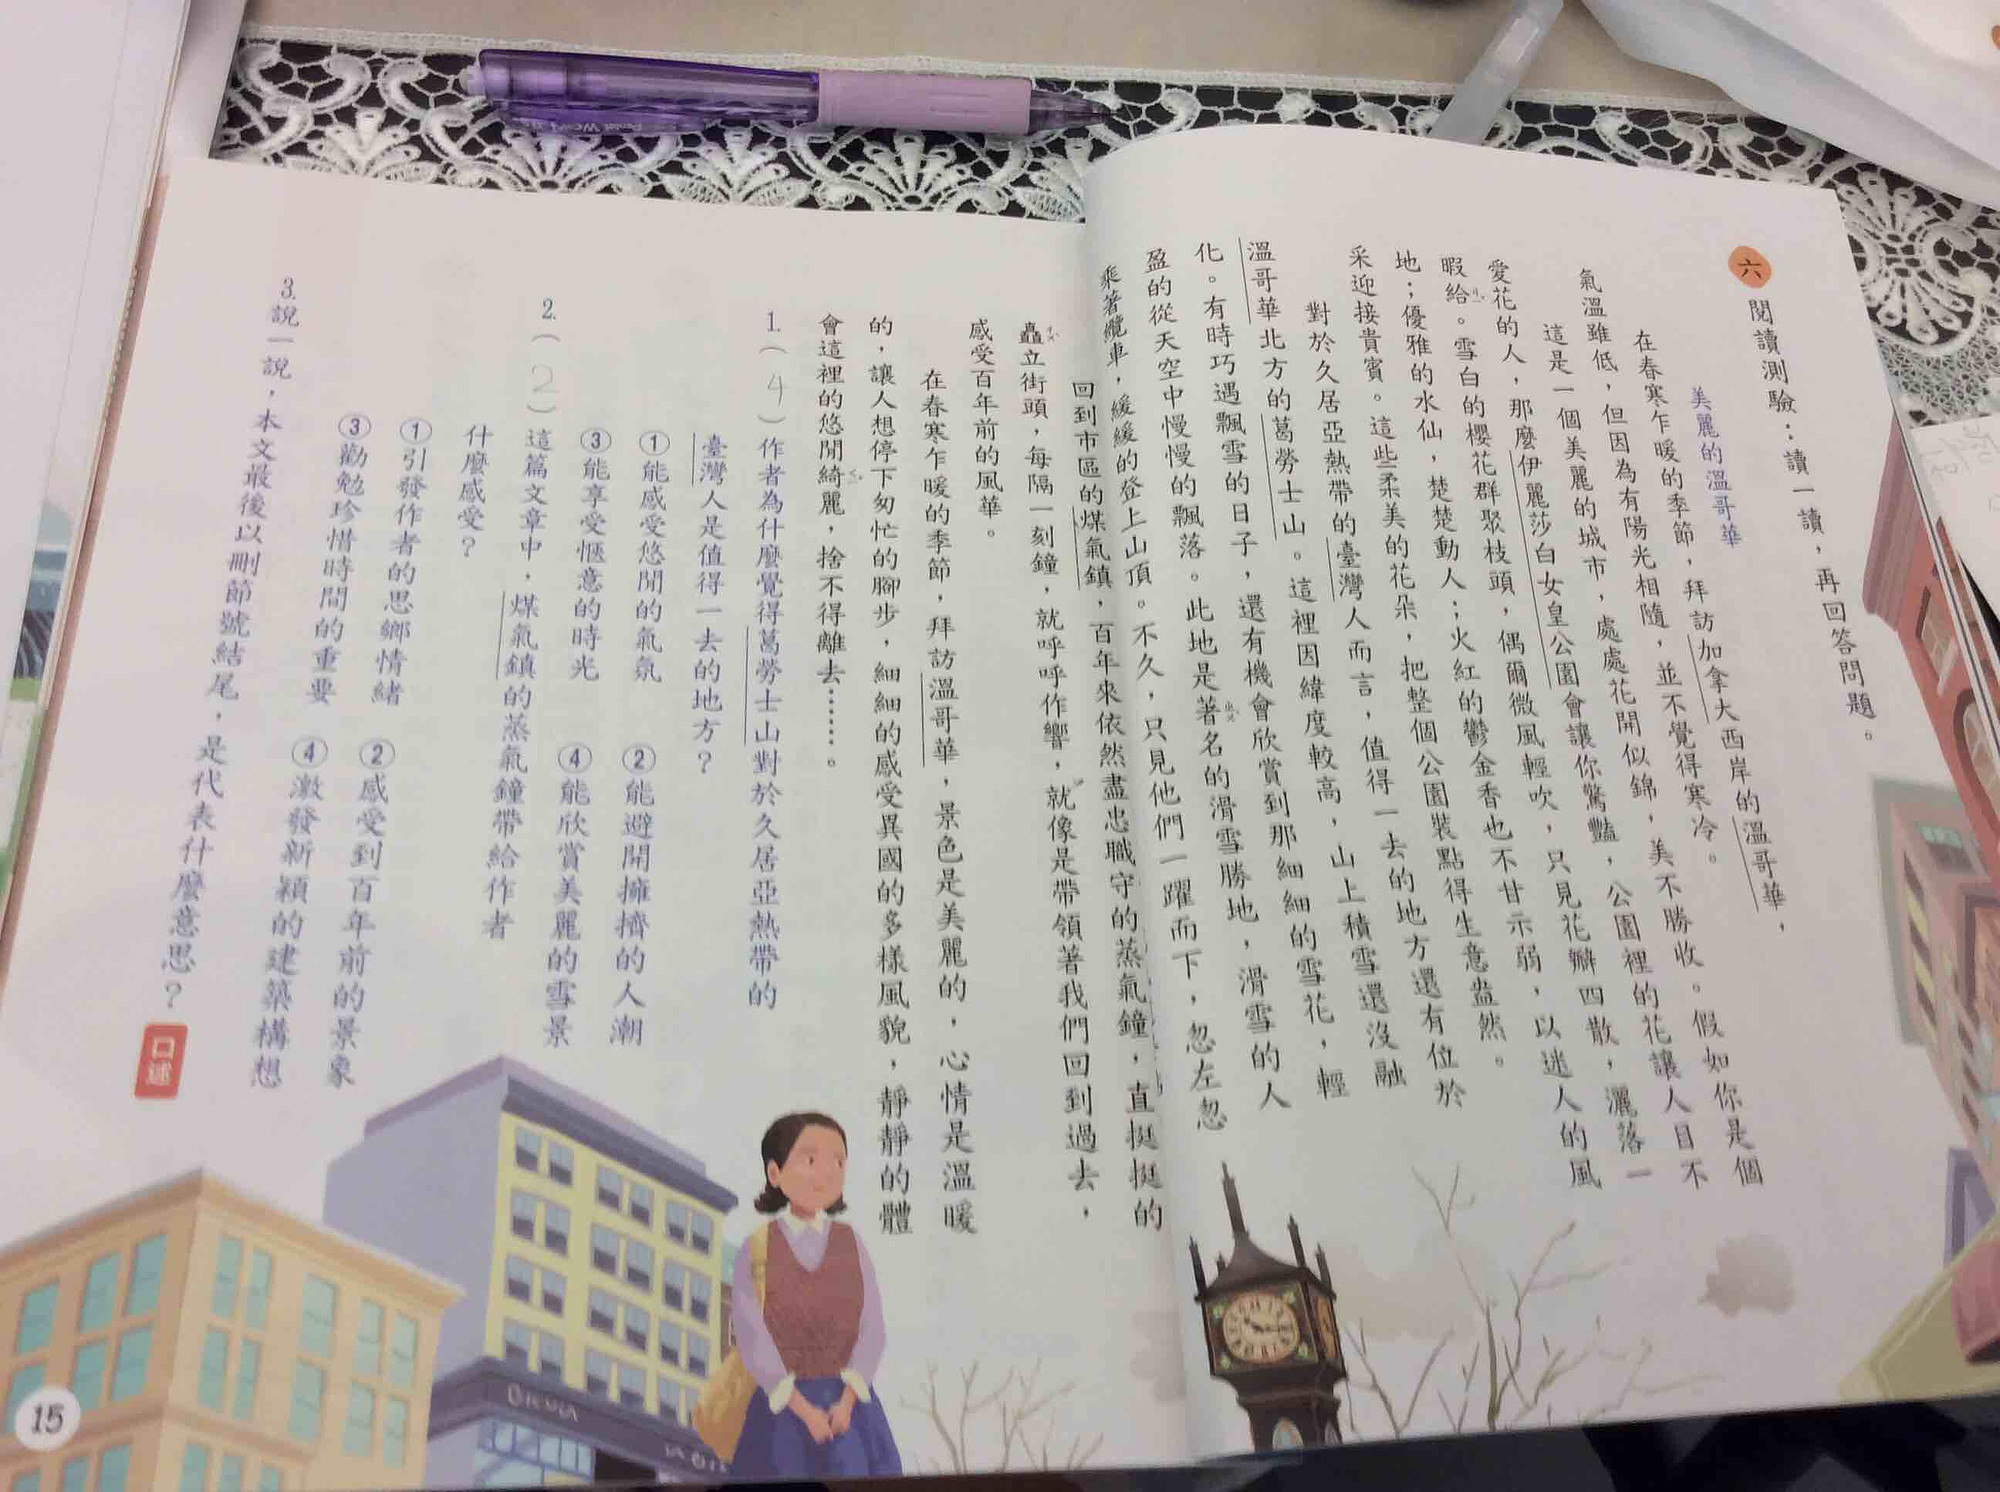 六 閱讀測驗：讀一讀，再回答問題。
美麗的溫哥華
在春寒乍暖的季節，拜訪加拿大西岸的溫哥華，
氣溫雖低，但因為有陽光相隨，並不覺得寒冷。
這是一個美麗的城市，處處花開似錦，美不勝收。假如你是個
愛花的人，那麼伊麗莎白女皇公園會讓你驚豔，公園裡的花讓人目不
暇給。雪白的櫻花群聚枝頭，偶爾微風輕吹，只見花瓣四散，灑落一
地；優雅的水仙，楚楚動人；火紅的鬱金香也不甘示弱，以迷人的風
采迎接貴賓。這些柔美的花朵，把整個公園裝點得生意盎然。
對於久居亞熱帶的臺灣人而言，值得一去的地方還有位於
溫哥華北方的葛勞士山。這裡因緯度較高，山上積雪還沒融
化。有時巧遇飄雪的日子，還有機會欣賞到那細細的雪花，輕
盈的從天空中慢慢的飄落。此地是著名的滑雪勝地，滑雪的人
乘著纜車，緩緩的登上山頂。不久，只見他們一躍而下，忽左忽
回到市區的煤氣鎮，百年來依然盡忠職守的蒸氣鐘，直挺挺的
矗立街頭，每隔一刻鐘，就呼呼作響，就像是帶領著我們回到過去，
感受百年前的風華。
在春寒乍暖的季節，拜訪溫哥華，景色是美麗的，心情是溫暖
的，讓人想停下匆忙的腳步，細細的感受異國的多樣風貌，靜靜的體
會這裡的悠閒綺麗，捨不得離去……。
1.（4）作者為什麼覺得葛勞士山對於久居亞熱帶的
臺灣人是值得一去的地方？
①能感受悠閒的氣氛 ②能避開擁擠的人潮
③能享受愜意的時光 ④能欣賞美麗的雪景
2.（2）這篇文章中，煤氣鎮的蒸氣鐘帶給作者
什麼感受？
①引發作者的思鄉情緒 ②感受到百年前的景象
③勸勉珍惜時間的重要 ④激發新穎的建築構想
3.說一說，本文最後以刪節號結尾，是代表什麼意思？口述
15